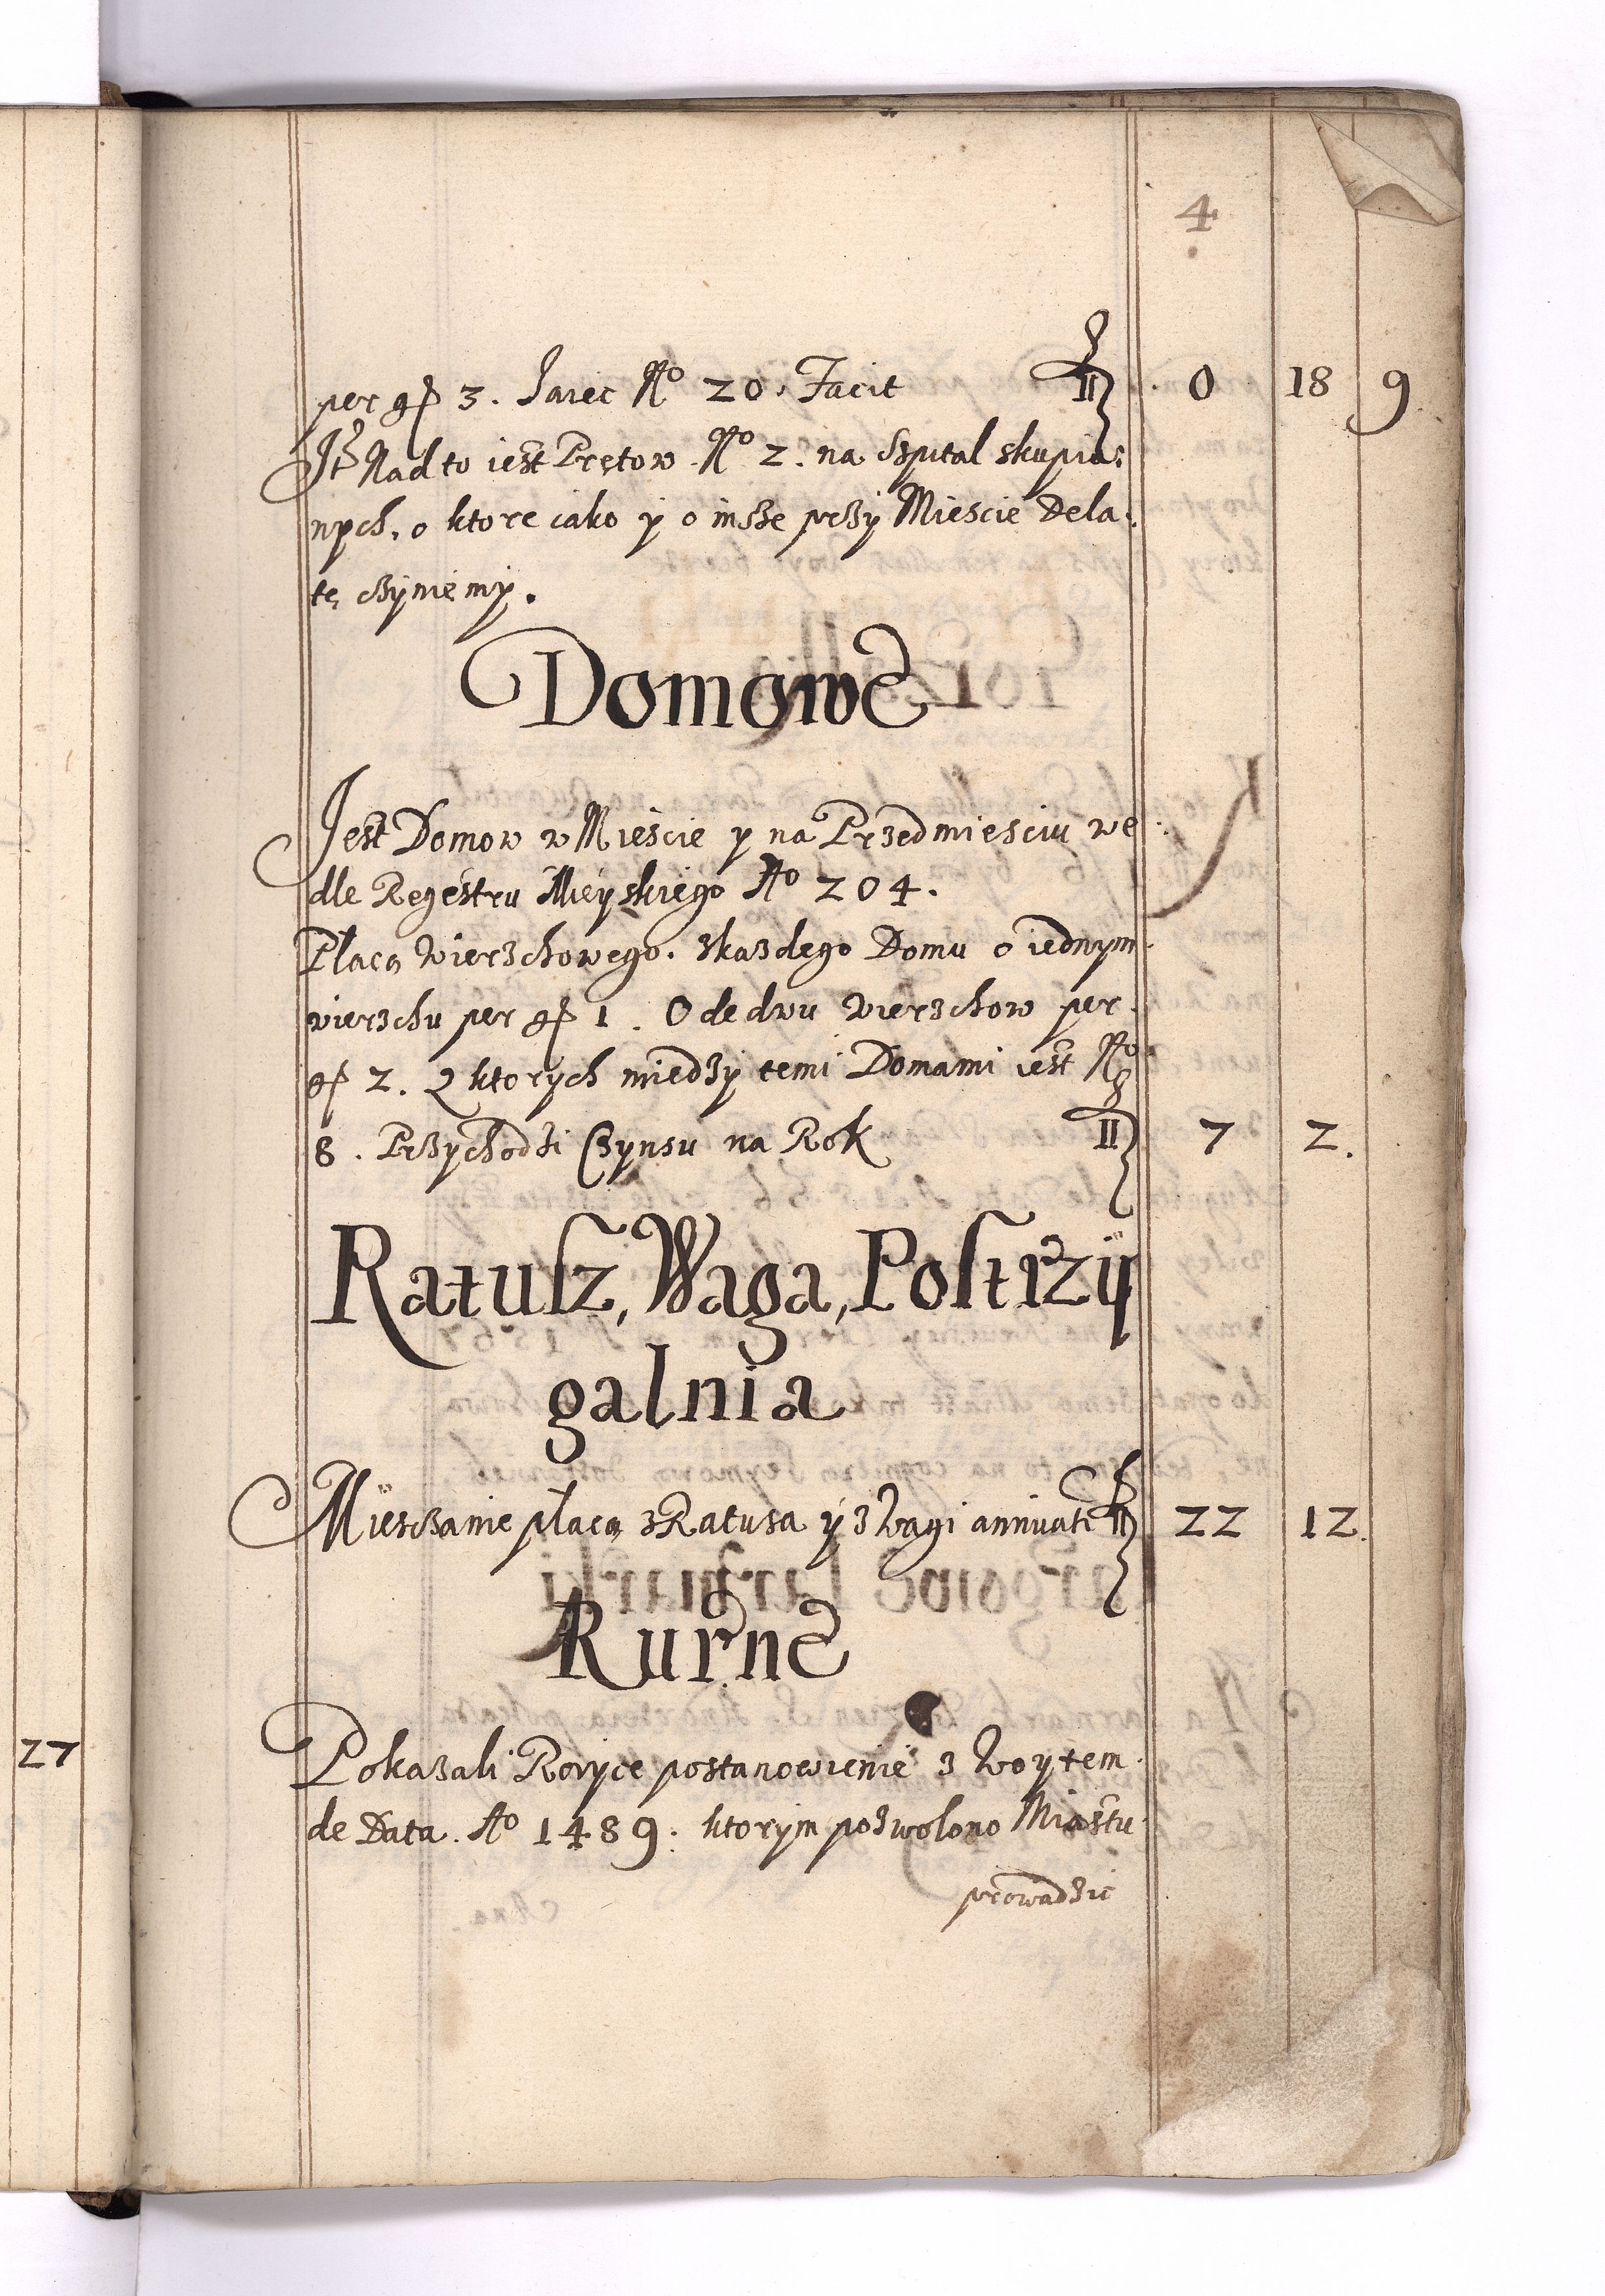 4
per gr 3. Jaiec No 20. Facit fl 0 18 9
Itē Nad to iest Prętow No 2. na Szpital skupia:
nych. o ktore iako y o insze przy Miescie Dela:
tę czyniemy.
Domowe
Jest Domow w Mieście y na Przedmiesciu we:
dle Regestru Mieyskiego No 204.
Płacą Wierzchowego. zkazdego Domu o iednym
wierzchu per gr 1. Ode dwu Wierzchow per
gr 2. Z ktorych miedzy temi Domami iest No
8. Przychodzi Czynsu na Rok fl 7 2.
Ratusz, Waga, Postrzy
galnia
Miesczanie płacą z Ratusa y z Wagi annuati fl 22 12.
Rurne
27
Pokazali Rayce postanowienie z Woytem
de Data. Ao 1489. ktorym pozwolono Miastu
prowadzic